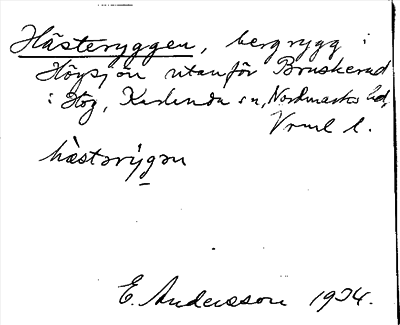 Hästeryggen, bergrygg i
Högsjön utanför Bruskerud
i Hög, Karlanda sn, Nordmarks hd,
Vrml l.
hästərýgən
E. Andersson 1934.